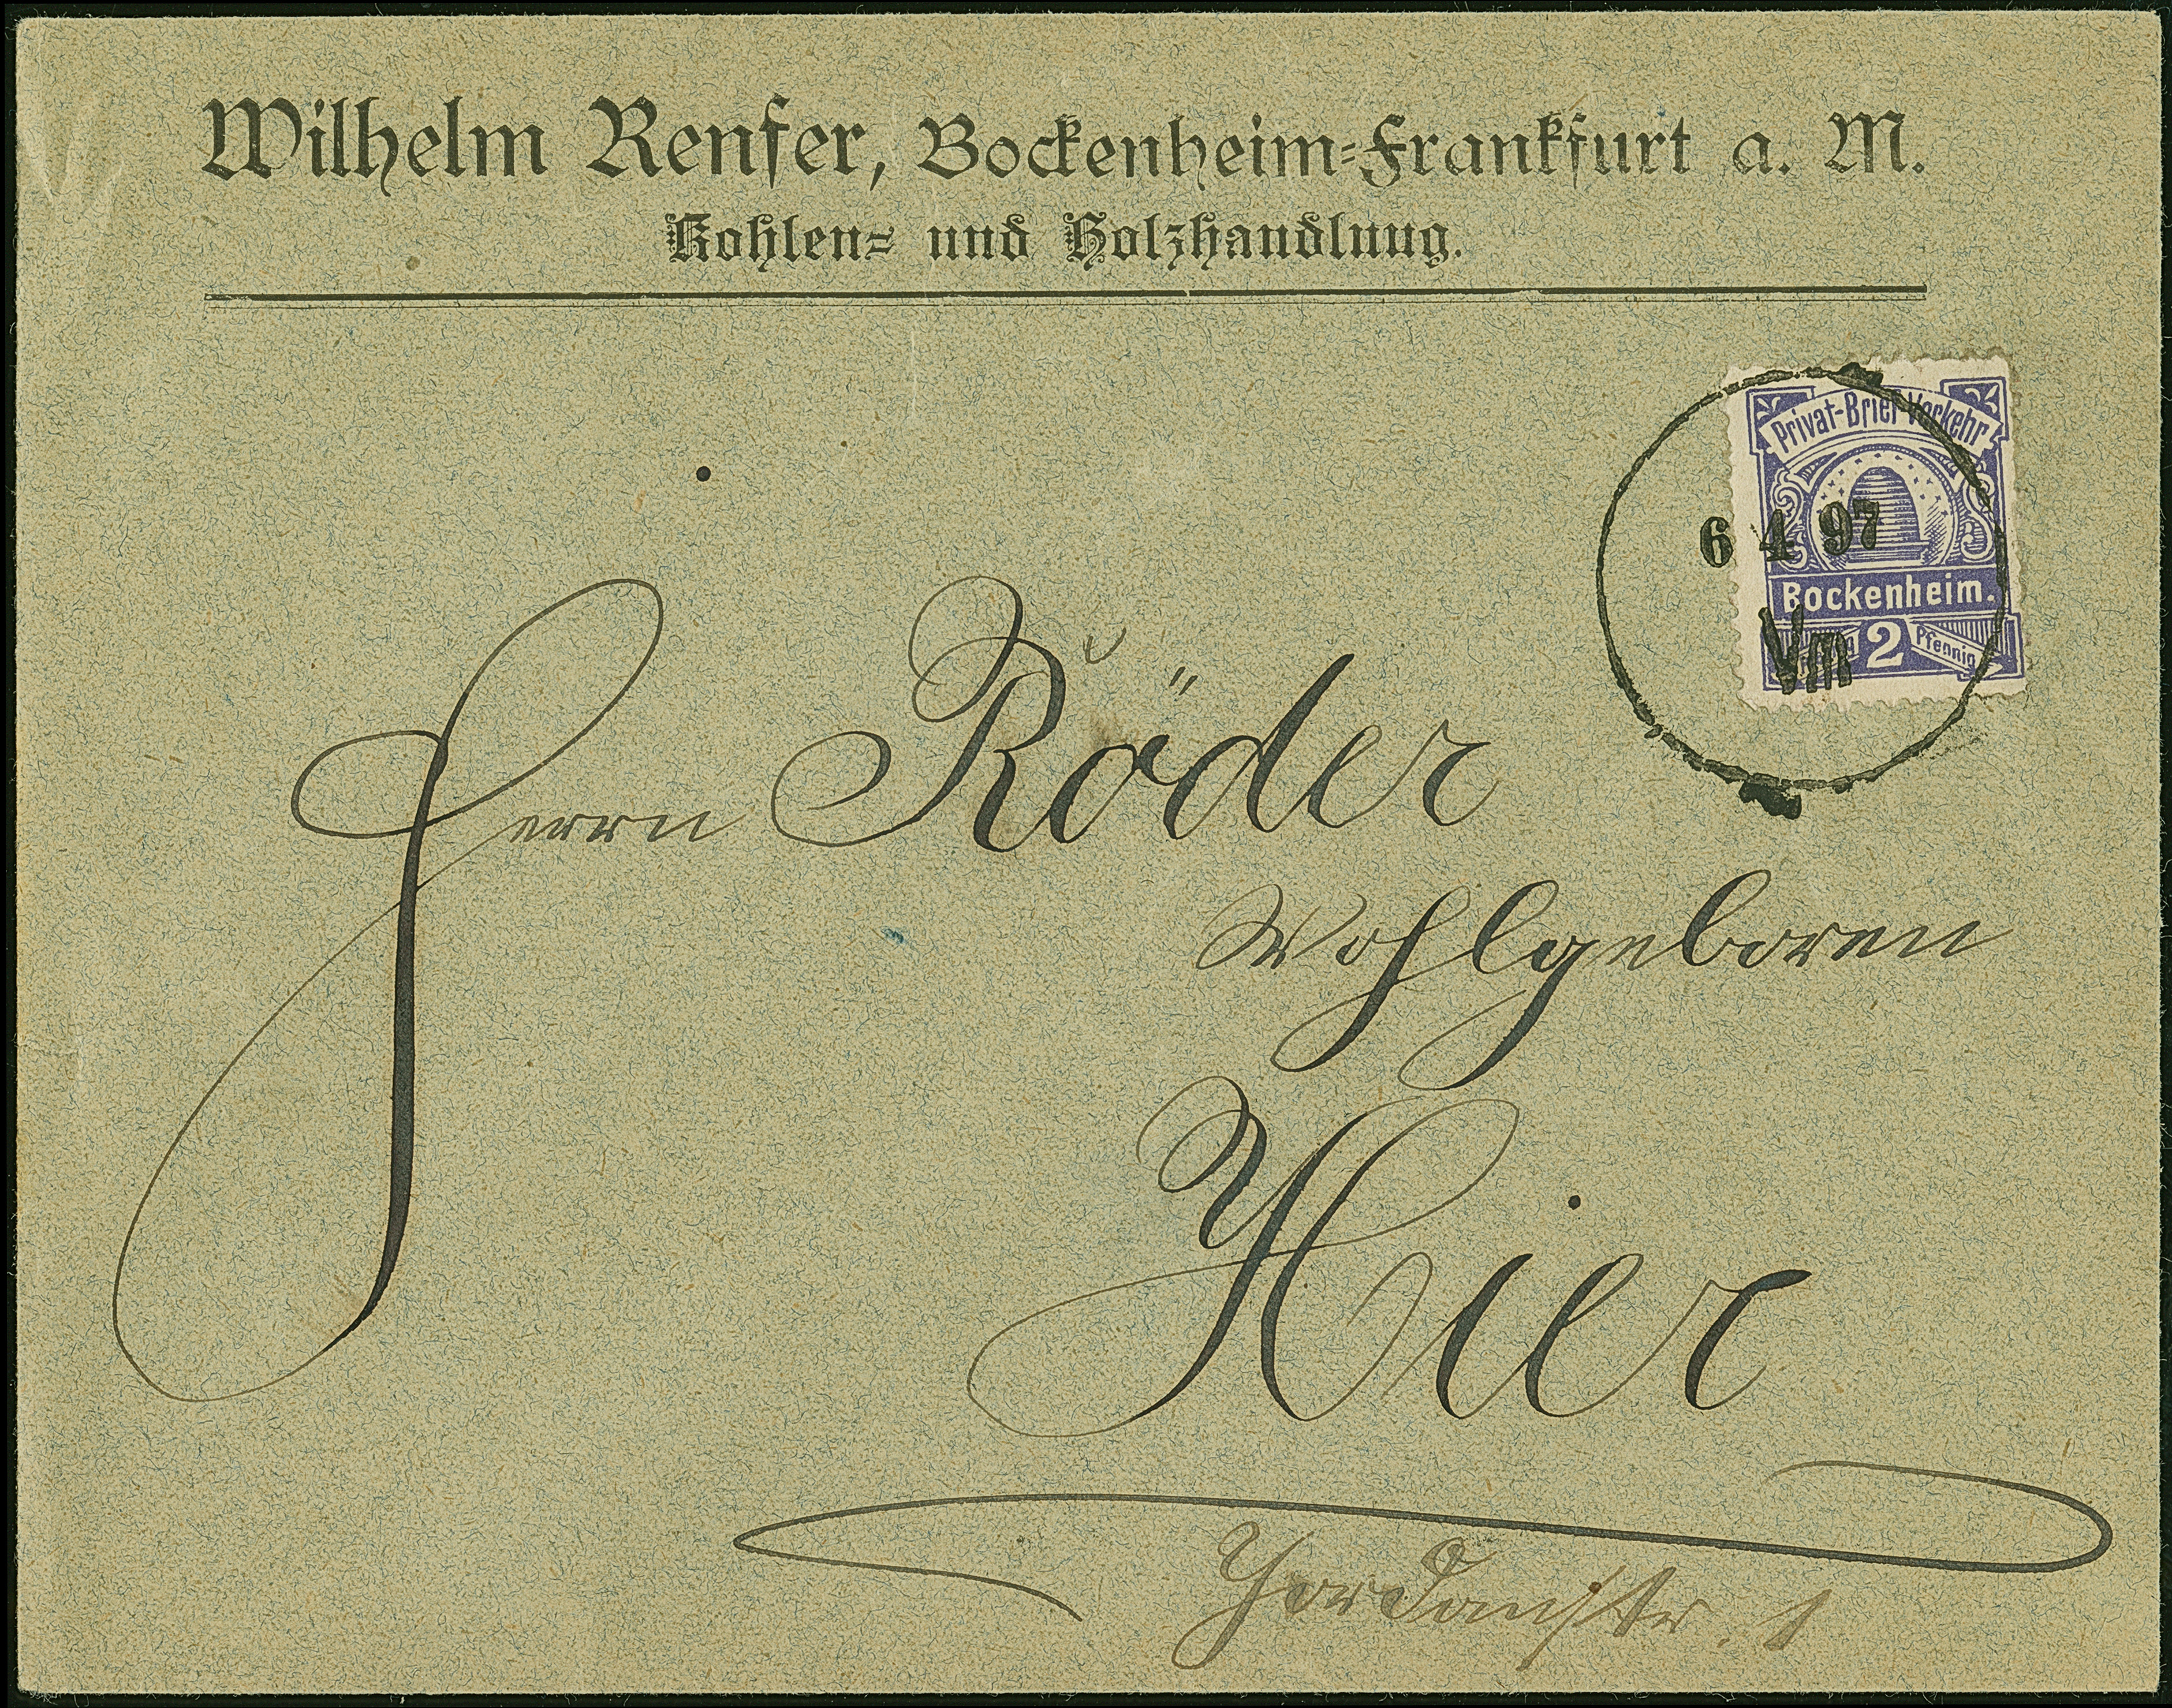 Wilhelm Renfer, Bockenheim-Frankfurt a. M.
Kohlen- und Holzhandlung.
Privat-Brief-Verkehr
6 4 97
Bockenheim.
Vm
2 Pfennig
Herrn Röder
Wohlgeboren
Hier
Jordanstr. 1